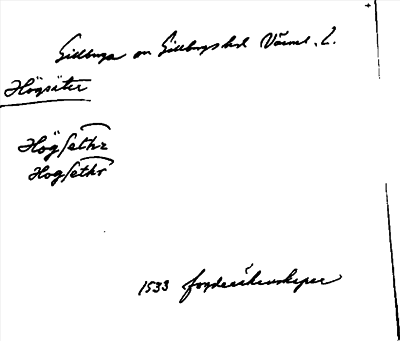 Gillberga sn Gillbergs hd Värml. l.
Högsäter
Högsethr
Hogsethr
1533 fogderäkenskaper